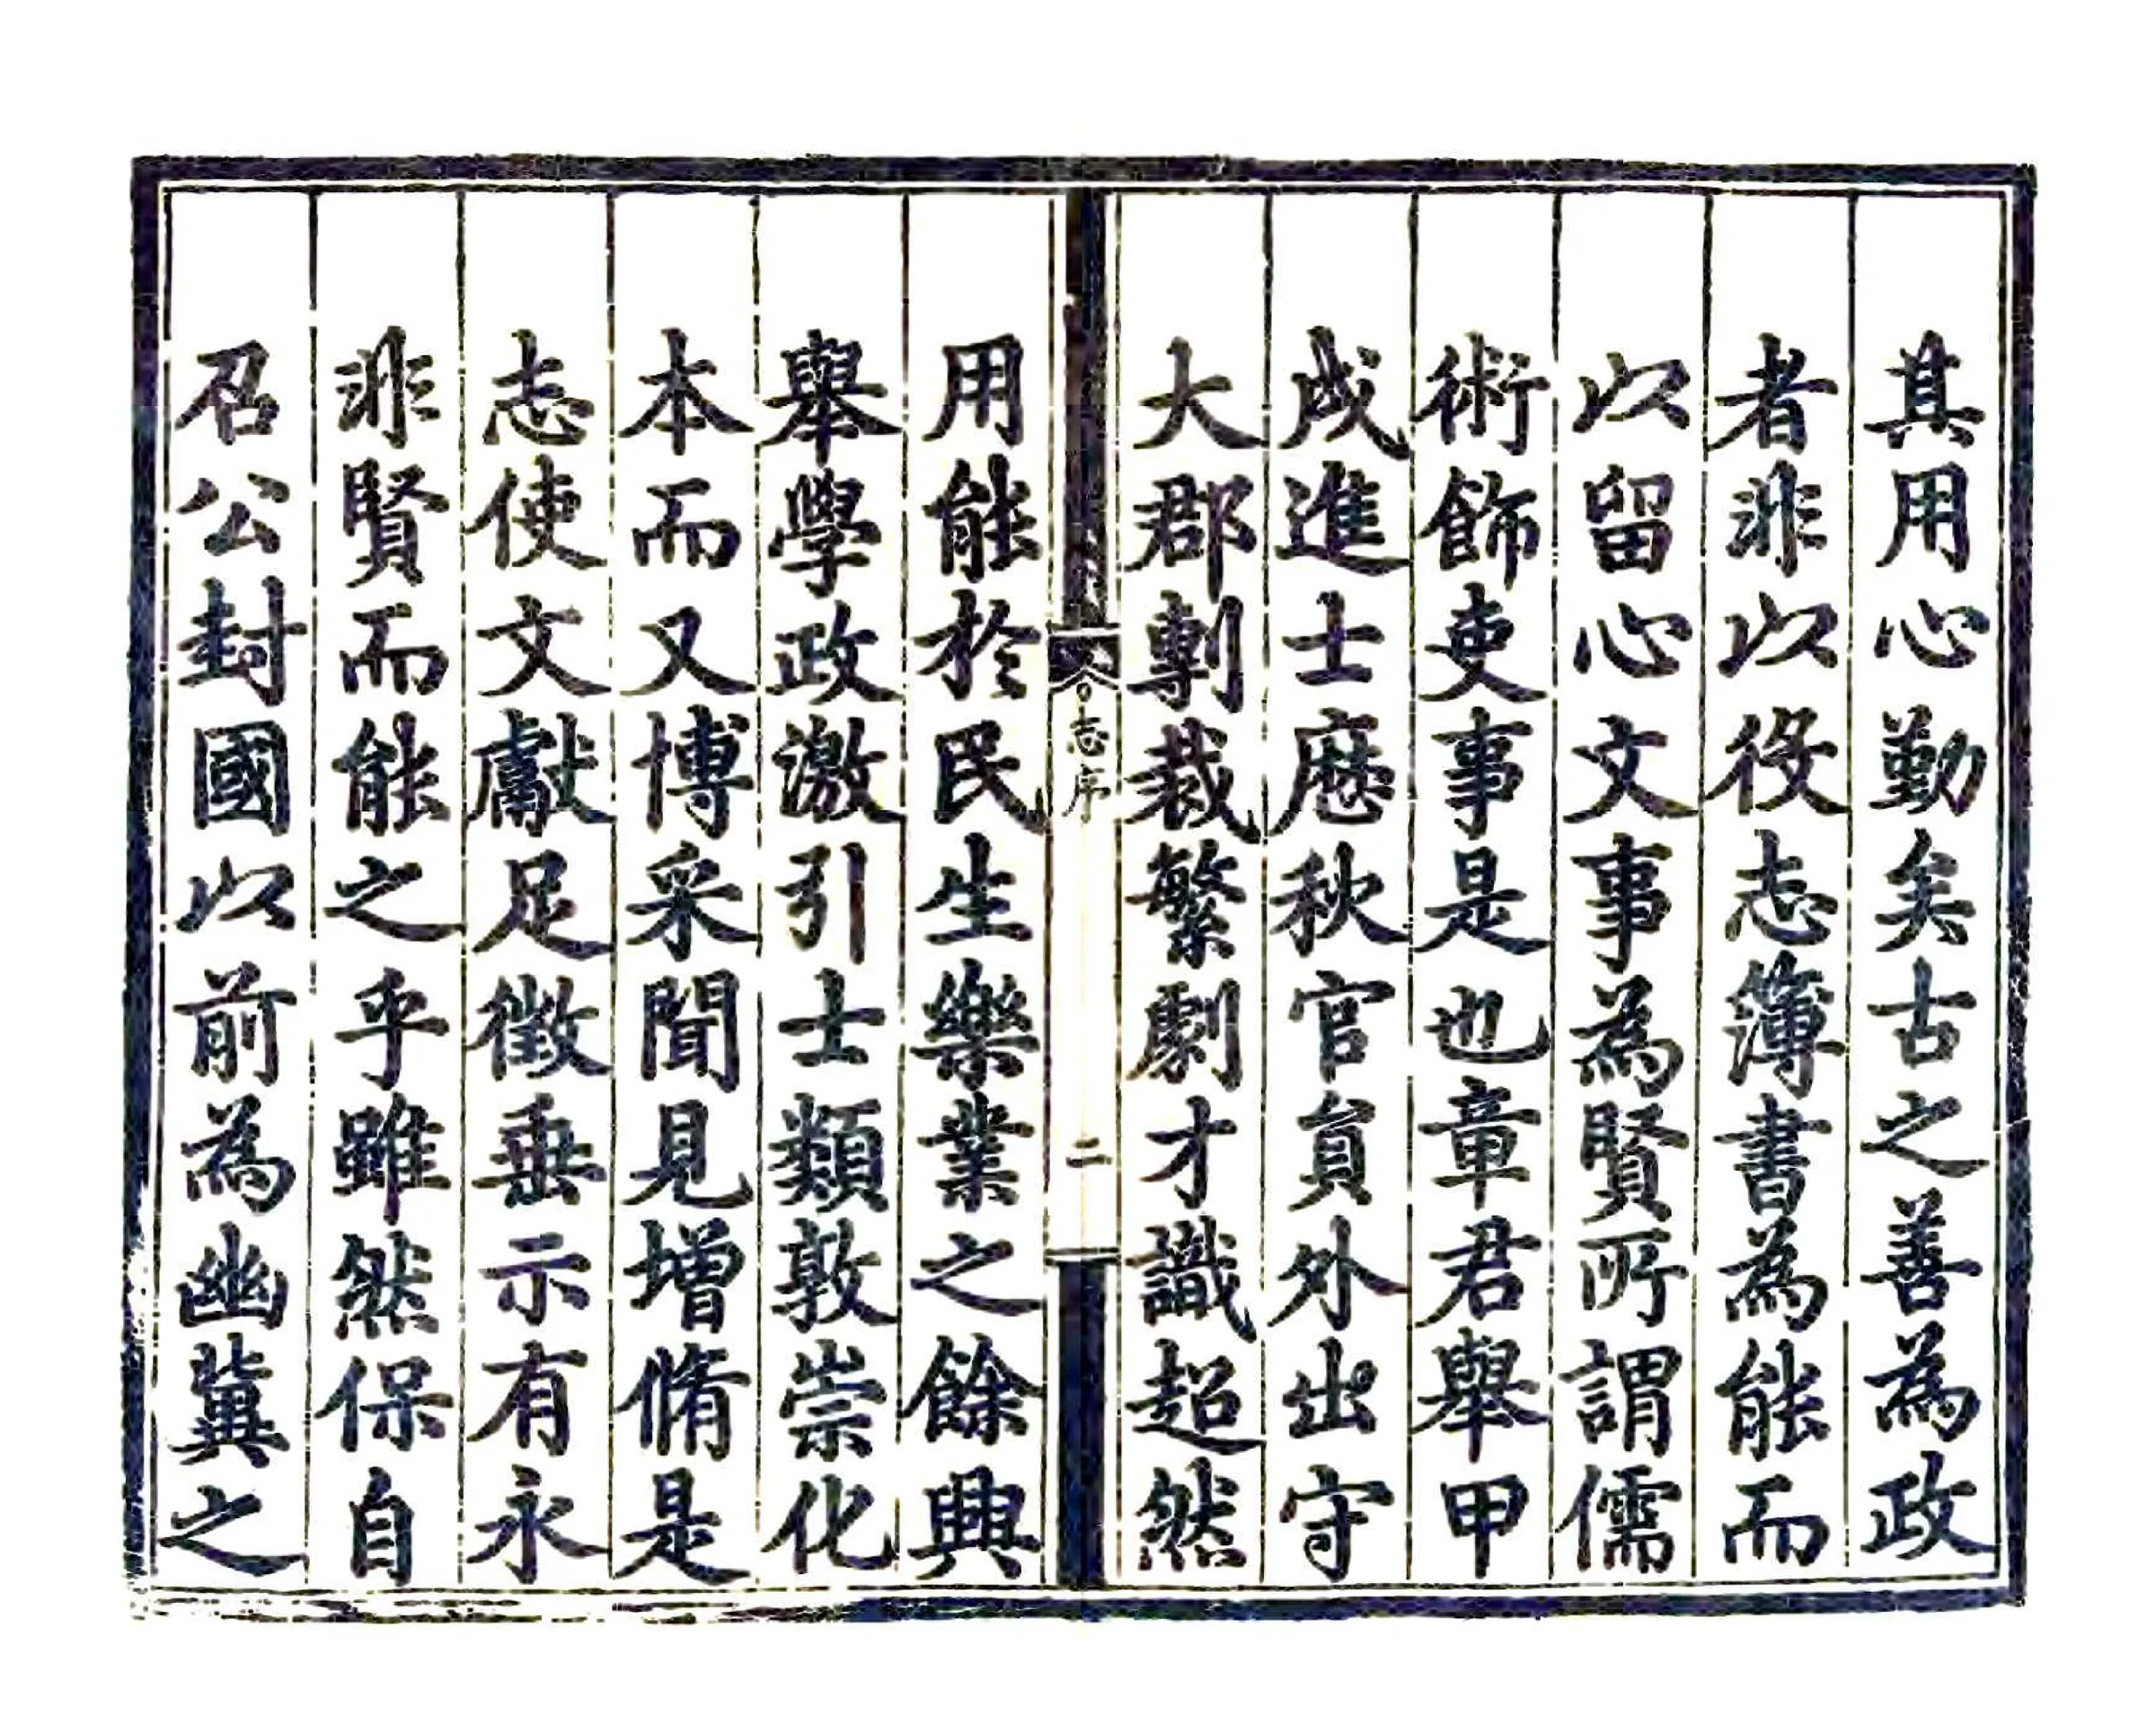 其用心勤矣古之善為政
者非以役志簿書為能而
以留心文事為賢所謂儒
術飾吏事是也章君舉甲
戌進士歴秋官員外出守
大郡剸裁繁劇才識超然
志序
二
用能於民生樂業之餘興
舉學政激引士類敦崇化
本而又博采聞見增脩是
志使文獻足徵垂示有永
非賢而能之乎雖然保自
召公封國以前為幽冀之